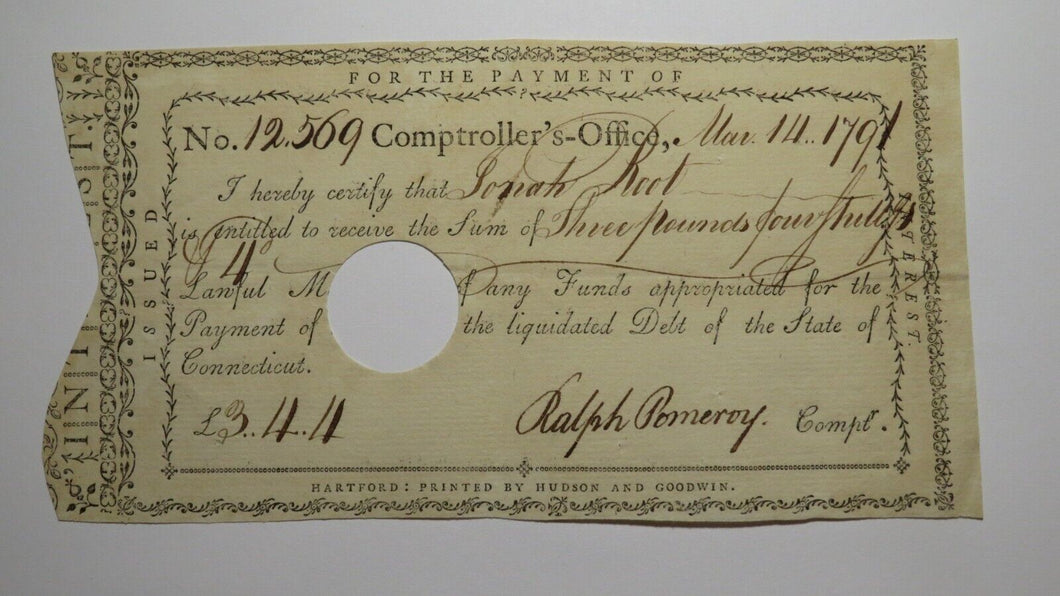 FOR THE PAYMENT OF
No. 12.569 Comptroller's-Office, Mar. 14.. 1791
I hereby certify that Jonah Root
is entitled to receive the Sum of Three pounds four shills
& 4
Lawful M any Funds appropriated for the
Payment of the liquidated Debt of the State of
Connecticut.
£3..4..4 Ralph Pomeroy. Comptr.
HARTFORD: PRINTED BY HUDSON AND GOODWIN.
ISSUED
INTEREST
INT ST.